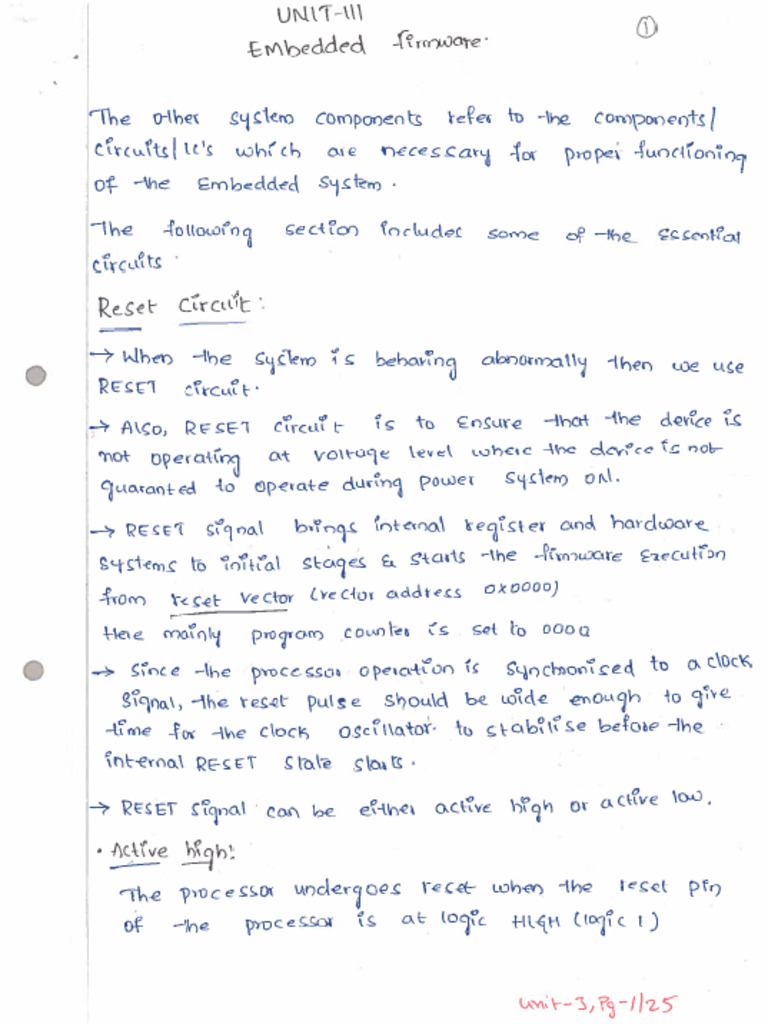 UNIT-III
①
Embedded firmware.
The other system components refer to the components/
circuits/IC's which are necessary for proper functioning
of the Embedded System.
The following section includes some of the Essential
circuits.
Reset Circuit:
→ When the system is behaving abnormally then we use
RESET circuit.
→ Also, RESET circuit is to Ensure that the device is
not operating at voltage level where the device is not
guaranted to operate during power system ON.
→ RESET signal brings internal register and hardware
systems to initial stages & starts the firmware Execution
from reset vector (vector address 0x0000)
Here mainly program counter is set to 0000
→ Since the processor operation is synchronised to a clock
signal, the reset pulse should be wide enough to give
time for the clock oscillator to stabilise before the
internal RESET state starts.
→ RESET signal can be either active high or active low.
• Active high:
The processor undergoes reset when the reset pin
of the processor is at logic HIGH (logic 1)
Unit-3, Pg-1/25